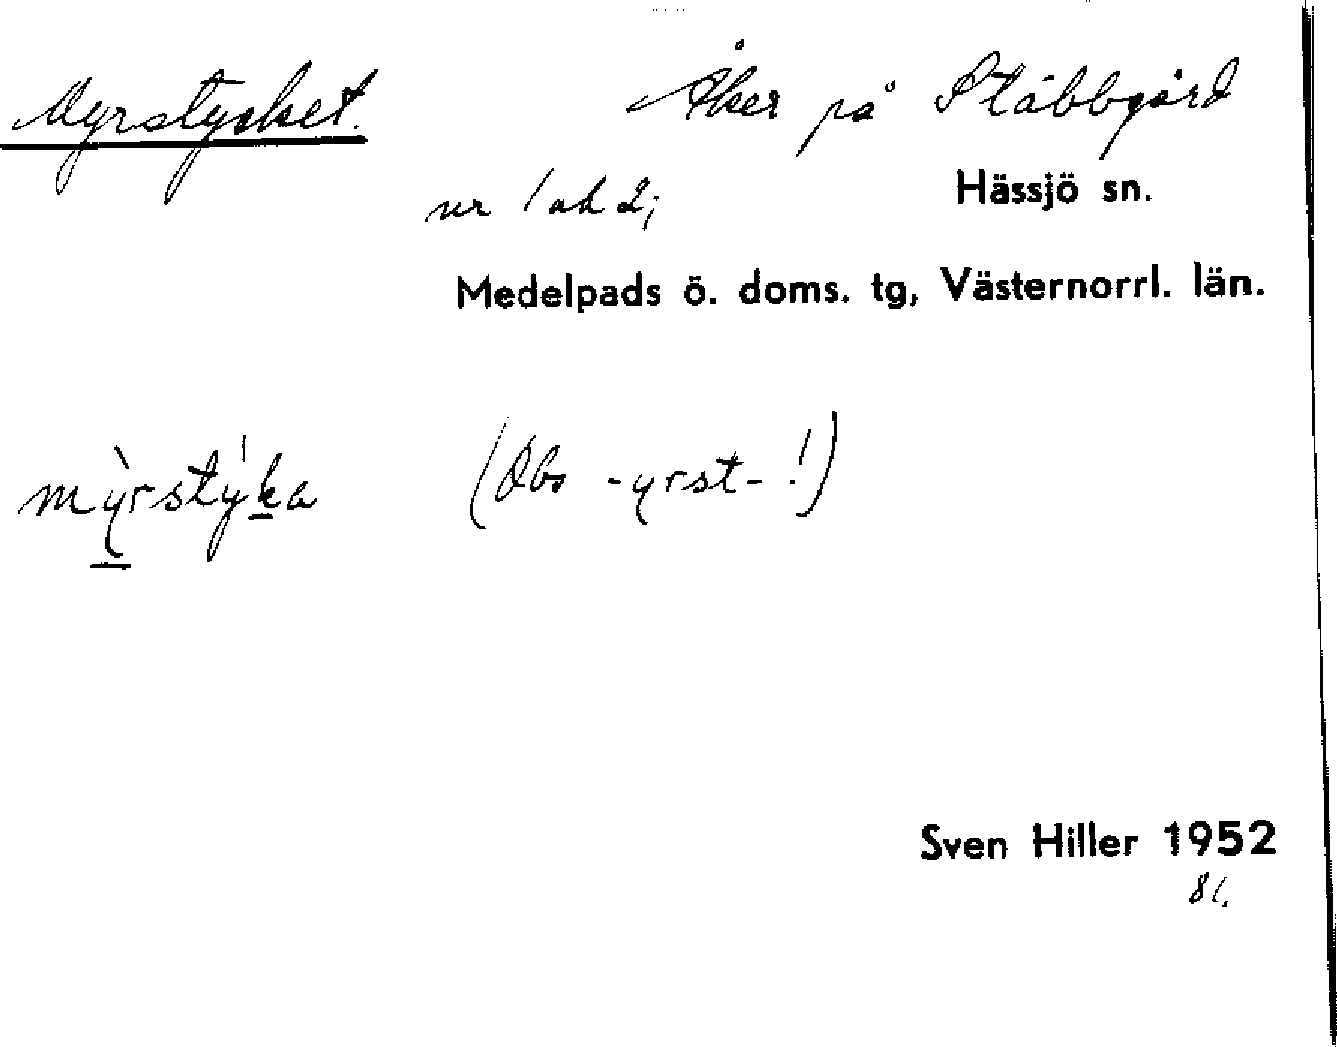 Myrstycket. Åker på Stäbbgård
nr 1 ah 2; Hässjö sn.
Medelpads ö. doms. tg, Västernorrl. län.
mỳrstýka (Obs -yrst- !)
Sven Hiller 1952
81.